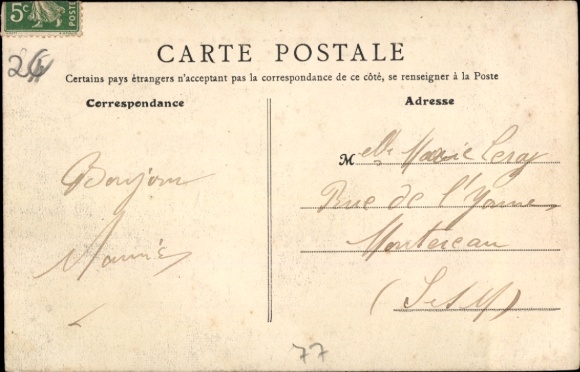 5c
POSTES
26
CARTE POSTALE
Certains pays étrangers n'acceptant pas la correspondance de ce côté, se renseigner à la Poste
Correspondance
Adresse
Bonjour
Melle Marie Leroy
Rue de l'Yonne
Montereau
(S et M)
77